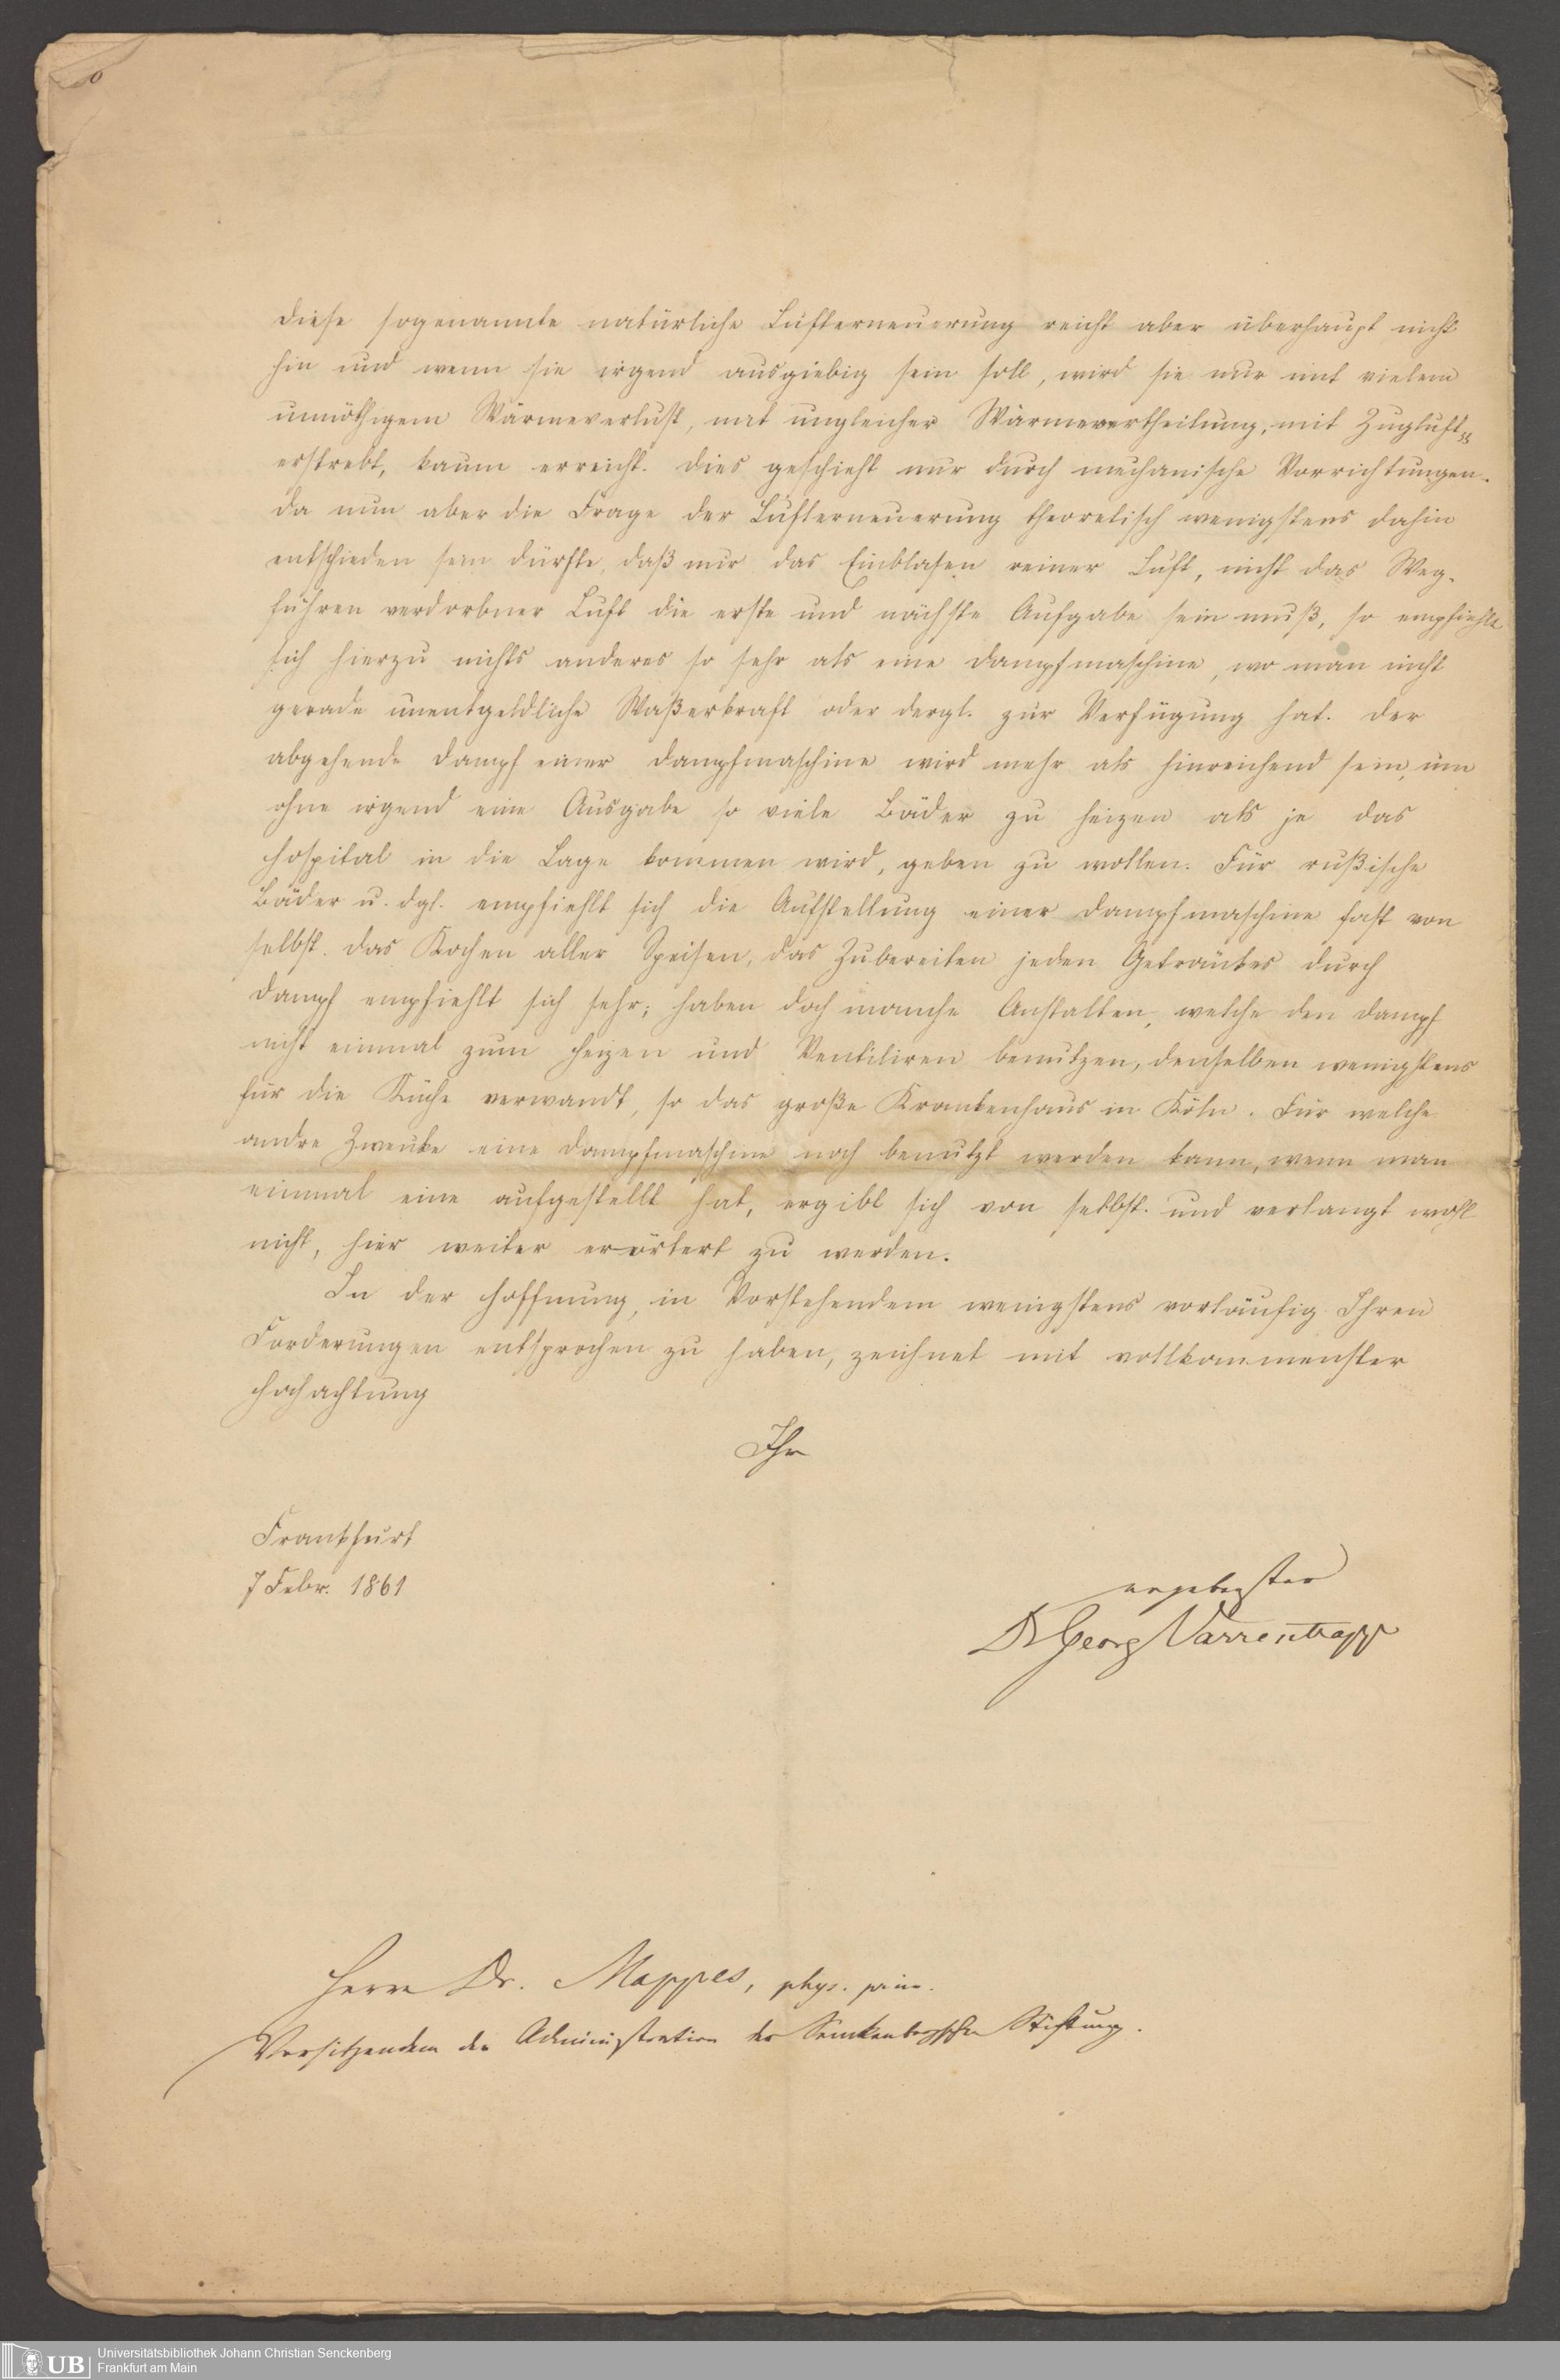 diese sogenannte natürliche Lufterneuerung reicht aber überhaupt nicht
hin und wenn sie irgend ausgiebig sein soll, wird sie nur mit vielem
unnöthigem Wärmeverlust, mit ungleicher Wärmevertheilung, mit Zugluft
erstrebt, kaum erreicht. Dies geschieht nur durch mechanische Vorrichtungen.
Da nun aber die Frage der Lufterneuerung theoretisch wenigstens dahin
entschieden sein dürfte, daß nur das Einblasen reiner Luft, nicht das Weg-
führen verdorbner Luft die erste und nächste Aufgabe sein muß, so empfiehlt
sich hierzu nichts anderes so sehr als eine Dampfmaschine, wo man nicht
gerade unentgeldliche Waßerkraft oder dergl. zur Verfügung hat. Der
abgehende Dampf einer Dampfmaschine wird mehr als hinreichend sein, um
ohne irgend eine Ausgabe so viele Bäder zu heizen als je das
Hospital in die Lage kommen wird, geben zu wollen. Für rußische
Bäder u. dgl. empfiehlt sich die Aufstellung einer Dampfmaschine fast von
selbst. Das Kochen aller Speisen, das Zubereiten jeden Getränkes durch
Dampf empfiehlt sich sehr; haben doch manche Anstalten, welche den Dampf
nicht einmal zum Heizen und Ventiliren benutzen, denselben wenigstens
für die Küche verwandt, so das große Krankenhaus in Köln. Für welche
andre Zwecke eine Dampfmaschine noch benutzt werden kann, wenn man
einmal eine aufgestellt hat, ergibt sich von selbst und verlangt wohl
nicht, hier weiter erörtert zu werden.
In der Hoffnung, in Vorstehendem wenigstens vorläufig Ihren
Forderungen entsprochen zu haben, zeichnet mit vollkommenster
Hochachtung
Ihr
Frankfurt
7 Febr. 1861
ergebenster
Dr Georg Varrentrapp
Herrn Dr. Mappes, phys. prim.
Vorsitzendem der Administration der Senckenbergischen Stiftung.
Universitätsbibliothek Johann Christian Senckenberg
Frankfurt am Main
UB